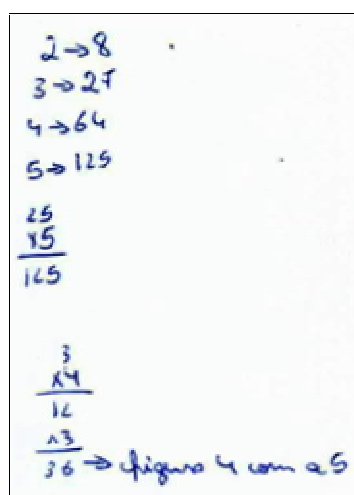 2 → 8
3 → 27
4 → 64
5 → 125
25
x5
125
3
x4
12
x3
36 → figura 4 com a 5